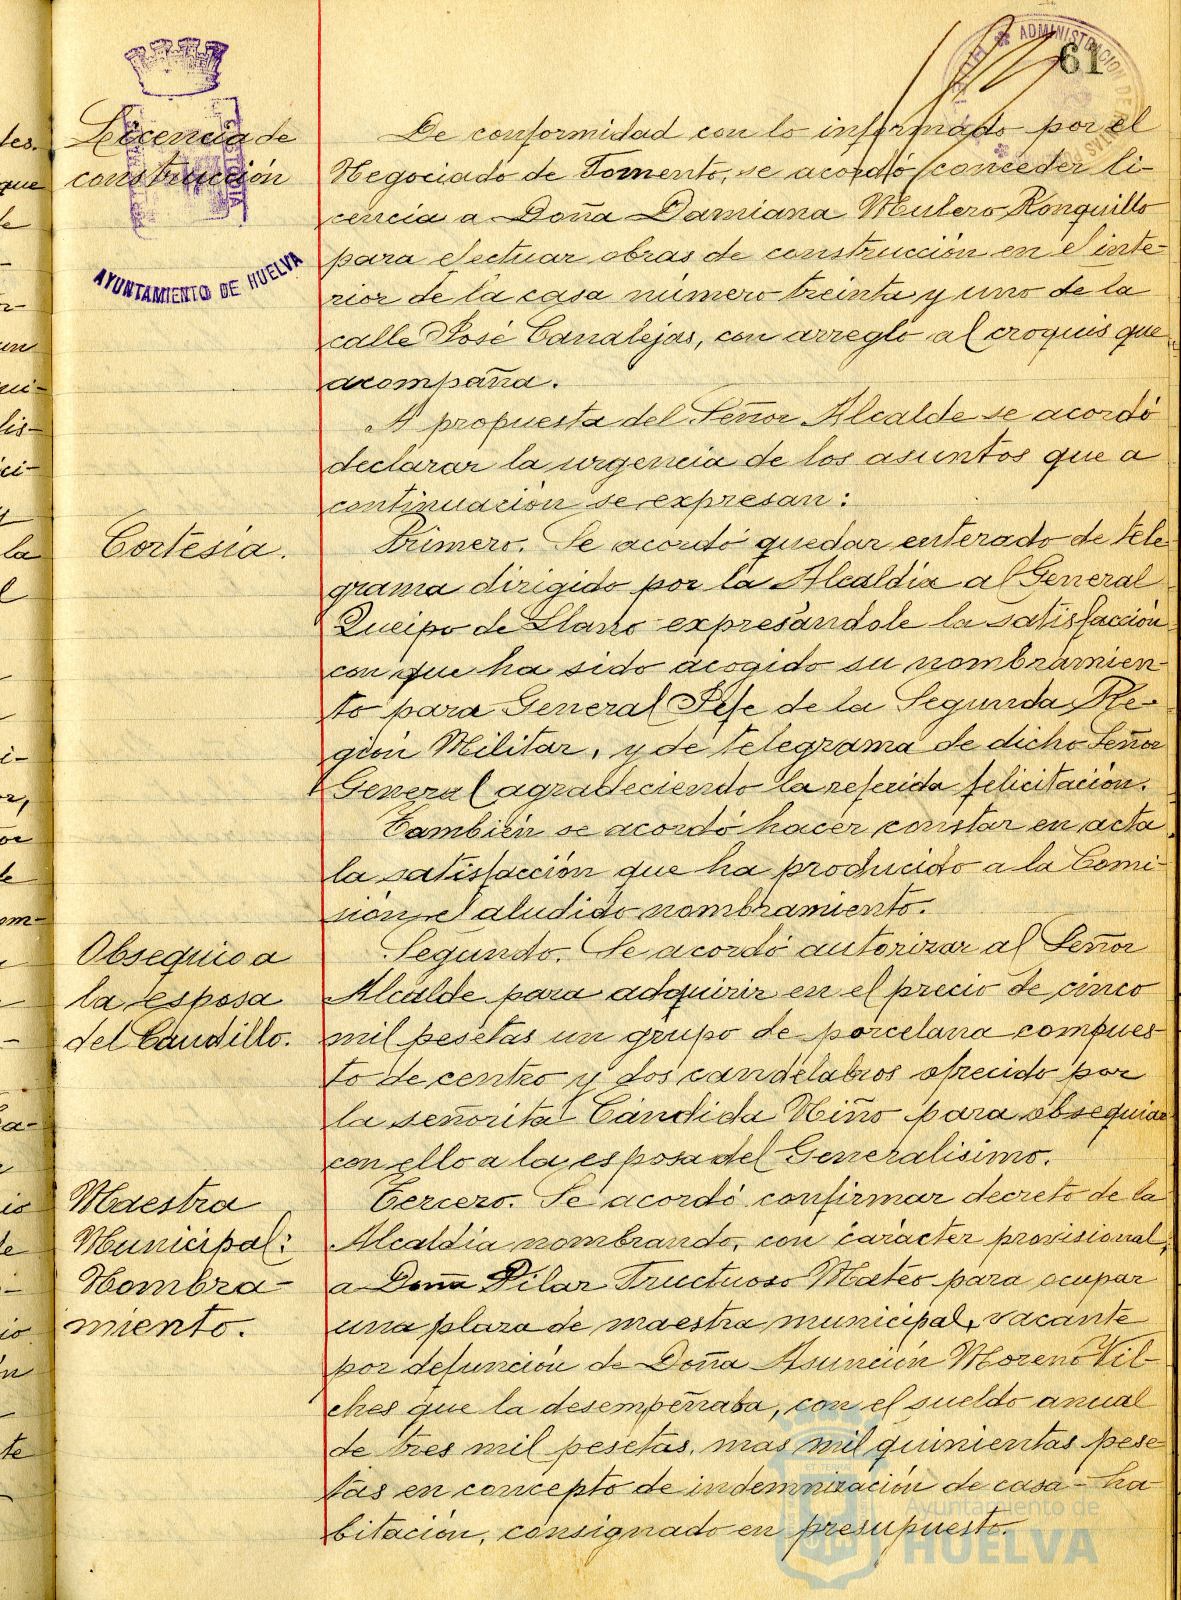 61
ADMINISTRACION DE
AYUNTAMIENTO DE HUELVA
Licencia de
construcción
De conformidad con lo informado por el
Negociado de Fomento, se acordó conceder li-
cencia a Doña Damiana Mulero Ronquillo
para efectuar obras de construcción en el inte-
rior de la casa número treinta y uno de la
calle José Canalejas, con arreglo al croquis que
acompaña.
A propuesta del Señor Alcalde se acordó
declarar la urgencia de los asuntos que a
continuación se expresan:
Cortesía.
Primero. Se acordó quedar enterado de tele-
grama dirigido por la Alcaldía al General
Queipo de Llano expresándole la satisfacción
con que ha sido acogido su nombramien-
to para General Jefe de la Segunda Re-
gión Militar, y de telegrama de dicho Señor
General agradeciendo la referida felicitación.
También se acordó hacer constar en acta
la satisfacción que ha producido a la Comi-
sión el aludido nombramiento.
Obsequio a
la esposa
del Caudillo.
Segundo. Se acordó autorizar al Señor
Alcalde para adquirir en el precio de cinco
mil pesetas un grupo de porcelana compues-
to de centro y dos candelabros ofrecido por
la señorita Cándida Niño para obsequiar
con ello a la esposa del Generalísimo.
Maestra
Municipal:
Nombra-
miento.
Tercero. Se acordó confirmar decreto de la
Alcaldía nombrando, con carácter provisional,
a Doña Pilar Fructuoso Mateo para ocupar
una plaza de maestra municipal, vacante
por defunción de Doña Asunción Moreno Vil-
ches que la desempeñaba, con el sueldo anual
de tres mil pesetas, mas mil quinientas pese-
tas en concepto de indemnización de casa-ha-
bitación, consignado en presupuesto.
Ayuntamiento de
HUELVA